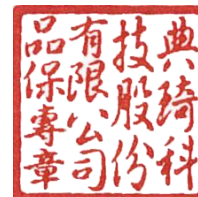 典琦科
技股份
有限公司
品保專章